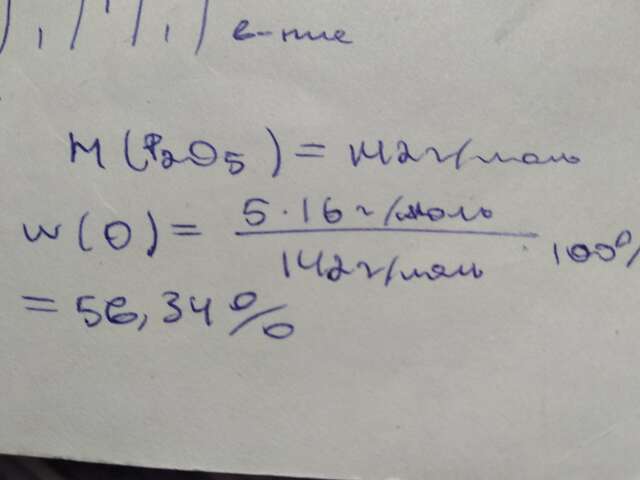 в-ние
M(P2O5) = 142 г/моль
w(O) = 5·16 г/моль / 142 г/моль · 100%
= 56,34%